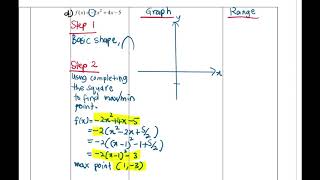 d) f(x) = -2x² + 4x - 5
Graph
Range
Step 1
Basic shape,
y
x
Step 2
Using completing
the square
to find max/min
point.
f(x) = -2x²+4x-5
= -2(x²-2x+5/2)
= -2((x-1)²-1+5/2)
= -2(x-1)²-3
max point (1,-3)